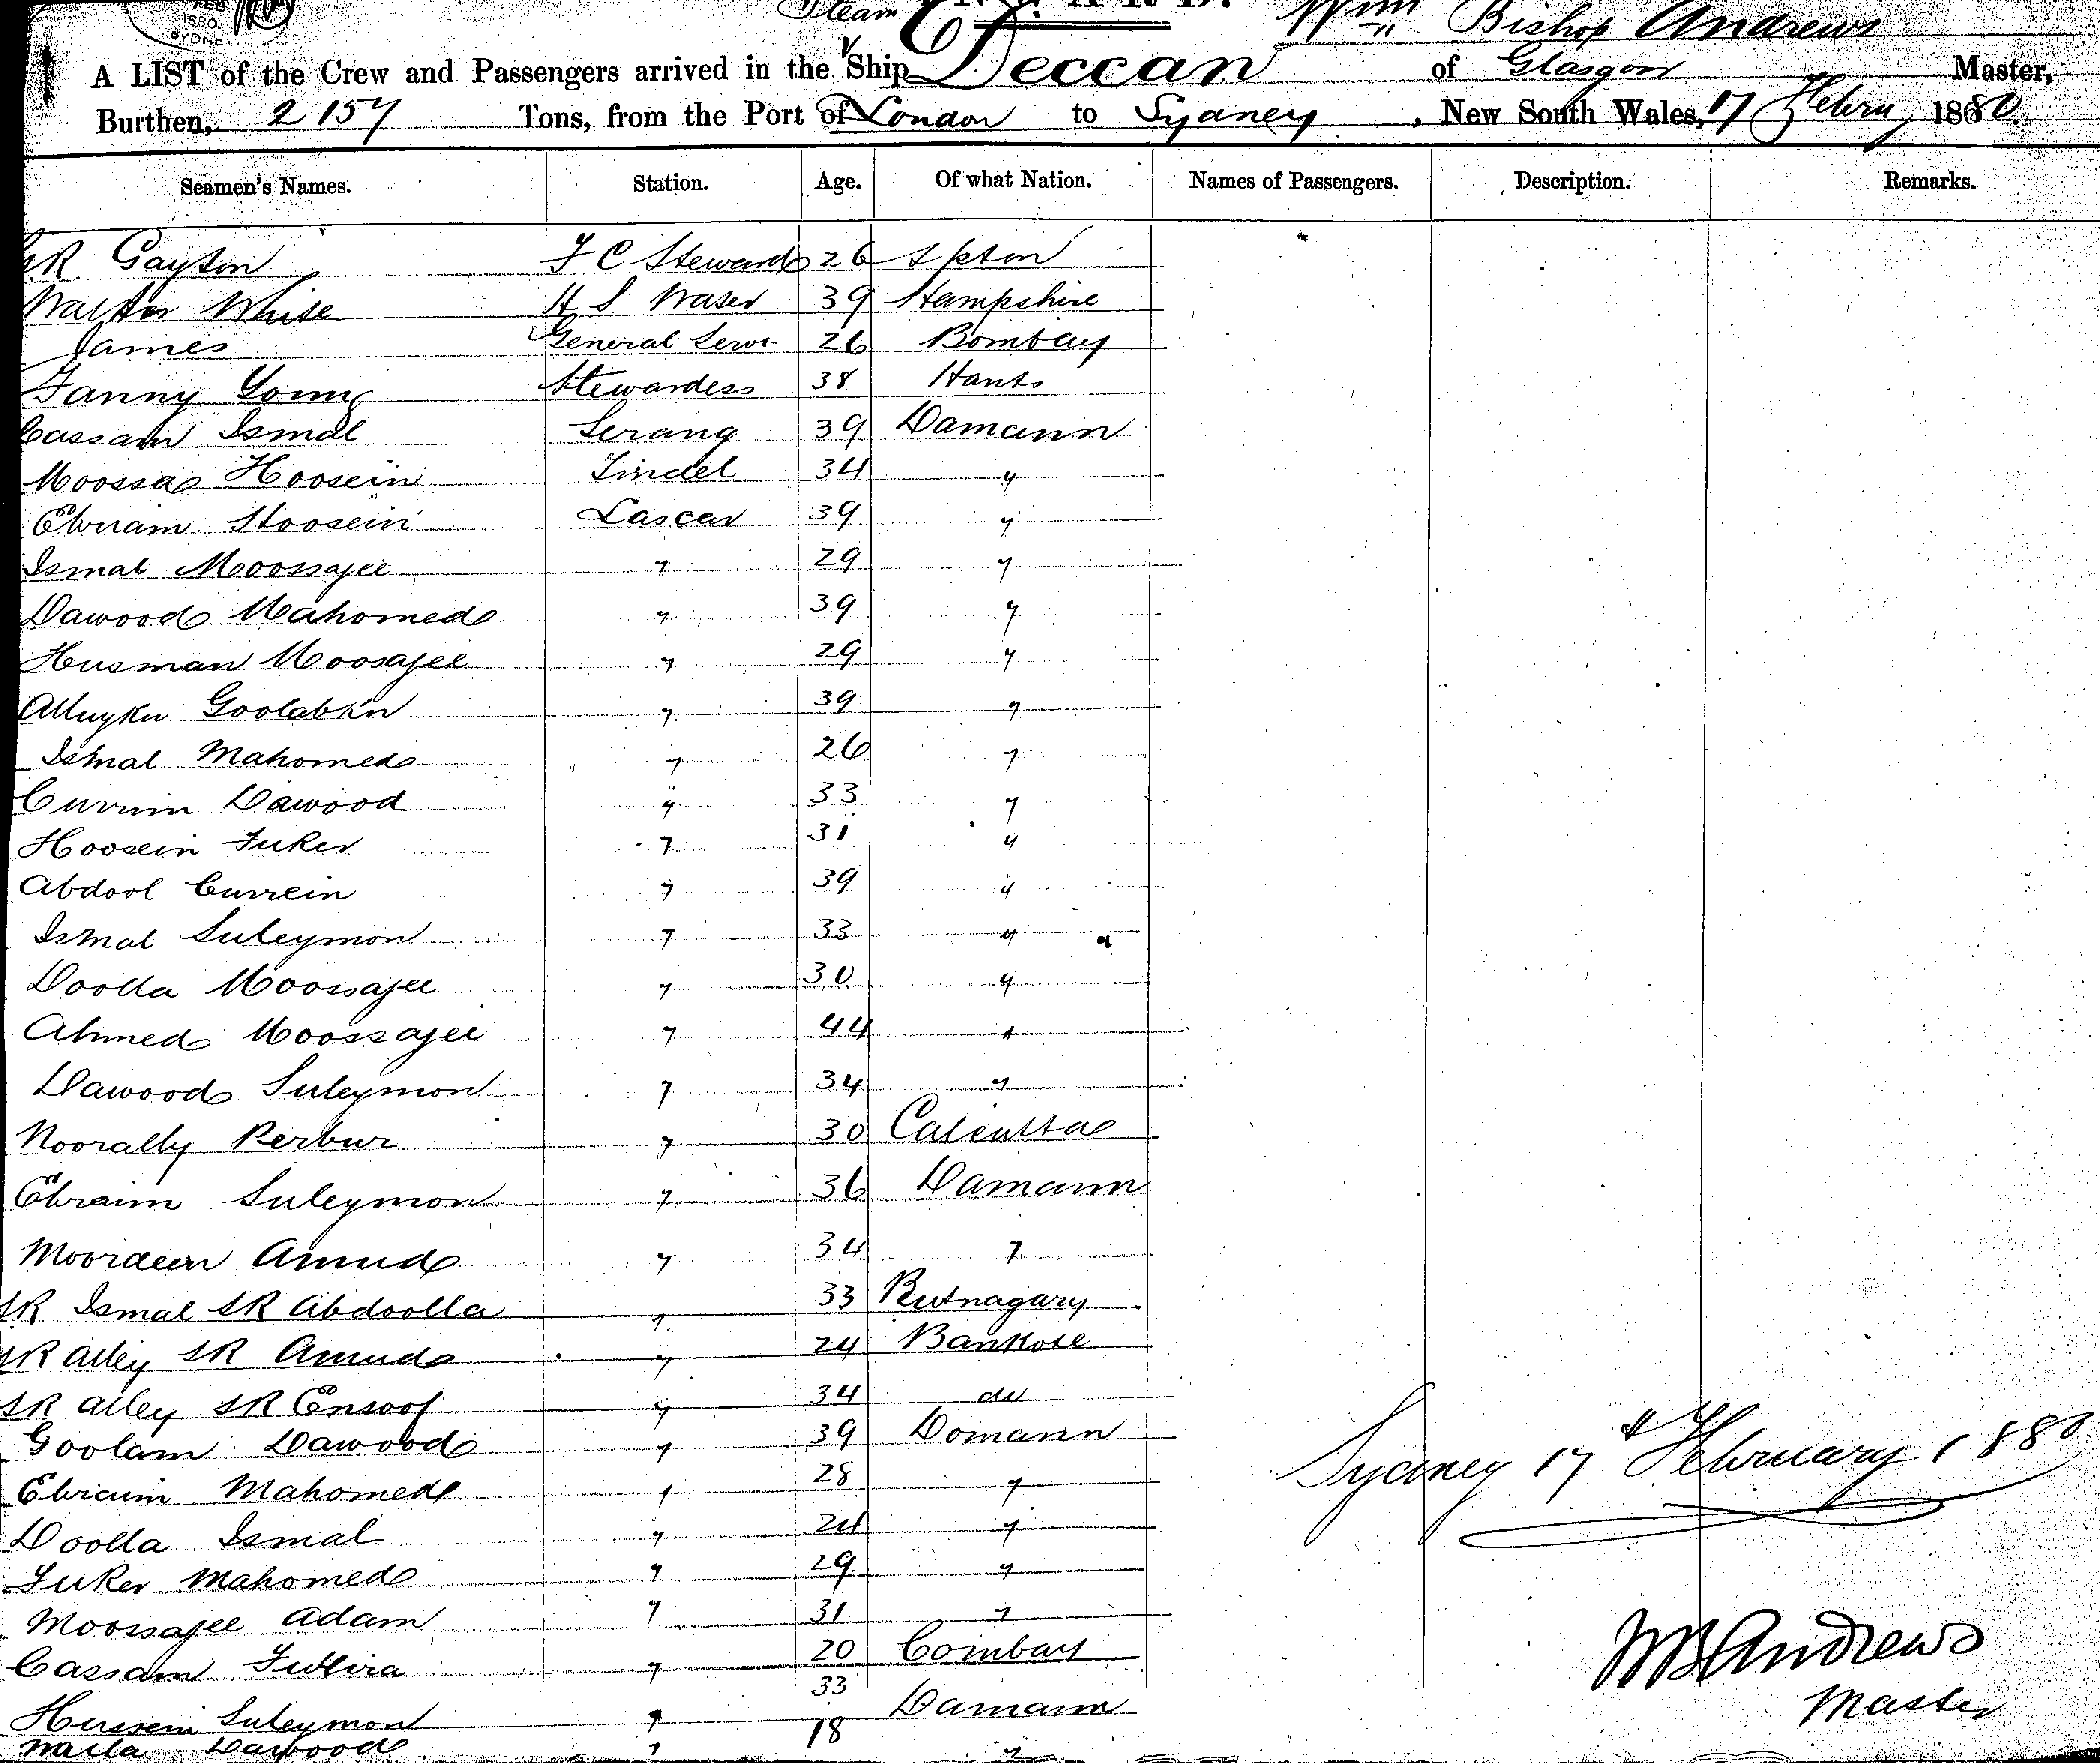 Steam Wm Bishop Andrews
A LIST of the Crew and Passengers arrived in the Ship Deccan of Glasgow Master,
Burthen, 2157 Tons, from the Port of London to Sydney, New South Wales, 17 Febry 1880
Seamen's Names. Station. Age. Of what Nation. Names of Passengers. Description. Remarks.
Gayton F C Steward 26
Walter White H S 39 Hampshire
James General Serv 26 Bombay
Fanny Young Stewardess 38 Hants
Cassam Ismal Serang 39 Damann
Moossa Hoosein Tindel 34 "
Ebraim Hoosein Lascar 39 "
Ismal Moossajee " 29 "
Dawood Mahomed " 39 "
Husman Moosajee " 29 "
Goolabkn " 39 "
Ismal Mahomed " 26 "
Currim Dawood " 33 "
Hoosein Fuker " 31 "
Abdool Currein " 39 "
Ismal Suleymon " 33 "
Doolla Moossajee " 30 "
Ahmed Moossajee " 44 "
Dawood Suleymon " 34 "
Noorally " 30 Calcutta
Ebraim Suleymon " 36 Damann
Moordeen Amud " 34 "
SK Ismal SK Abdoolla " 33 Rutnagary
SK Alley SK Amud " 24 Bankote
SK Alley SK Ensoof " 34 do
Goolam Dawood " 39 Domann
Ebraim Mahomed " 28 "
Doolla Ismal " 24 "
Fuker Mahomed " 29 "
Moossajee Adam " 31 "
Cassam " 20
Hussein Suleymon " 33 Damann
Dawood " 18 "
Sydney 17th February 1880
WB Andrews
Master